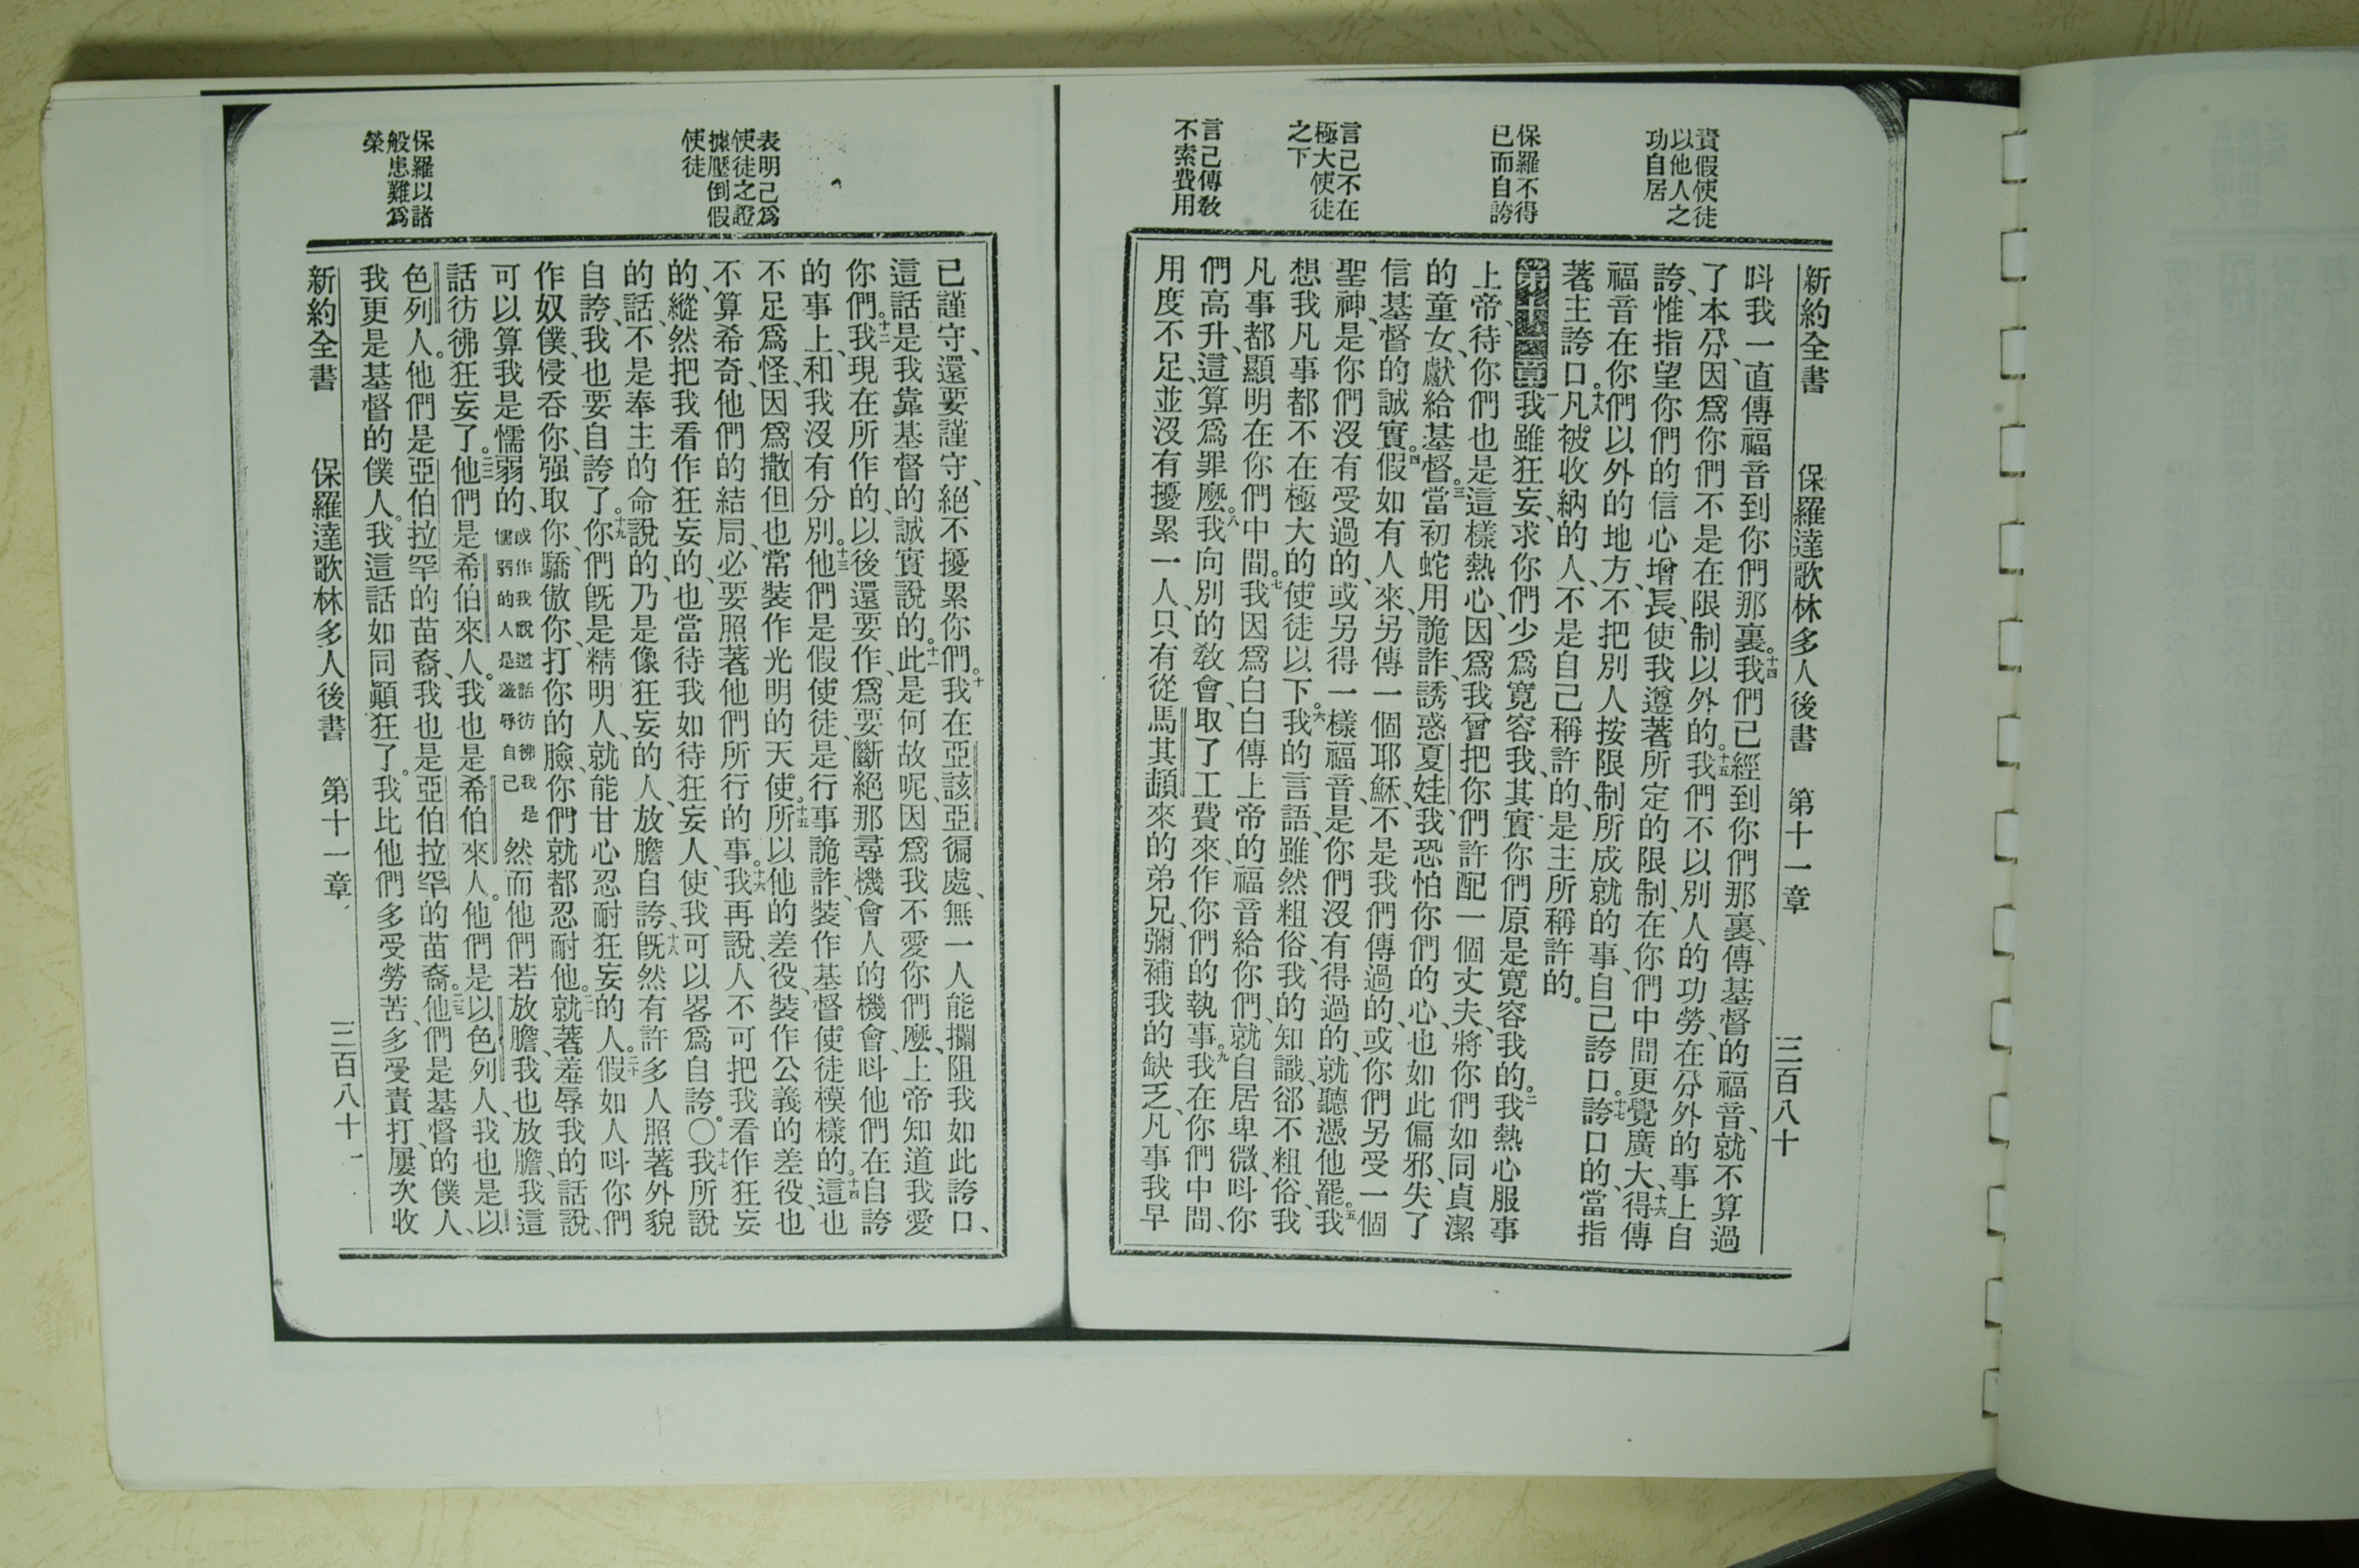 責假使徒
以他人之
功自居
保羅不得
已而自誇
言己不在
極大使徒
之下
言己傳敎
不索費用
新約全書 保羅達歌林多人後書 第十一章 三百八十
呌我一直傳福音到你們那裏。十四我們已經到你們那裏、傳基督的福音、就不算過
了本分、因爲你們不是在限制以外的。十五我們不以別人的功勞、在分外的事上自
誇、惟指望你們的信心增長、使我遵著所定的限制、在你們中間更覺廣大、十六得傳
福音在你們以外的地方、不把別人按限制所成就的事、自己誇口。十七誇口的、當指
著主誇口。十八凡被收納的人、不是自己稱許的、是主所稱許的。
第十一章一我雖狂妄、求你們少爲寬容我、其實你們原是寬容我的。二我熱心服事
上帝、待你們也是這樣熱心、因爲我曾把你們許配一個丈夫、將你們如同貞潔
的童女、獻給基督。三當初蛇用詭詐、誘惑夏娃、我恐怕你們的心、也如此偏邪、失了
信基督的誠實。四假如有人來、另傳一個耶穌、不是我們傳過的、或你們另受一個
聖神、是你們沒有受過的、或另得一樣福音、是你們沒有得過的、就聽憑他罷。五我
想我凡事都不在極大的使徒以下。六我的言語、雖然粗俗、我的知識、卻不粗俗、我
凡事都顯明在你們中間。七我因爲白白傳上帝的福音給你們、就自居卑微、呌你
們高升、這算爲罪麽。八我向別的敎會、取了工費來、作你們的執事。九我在你們中間、
用度不足、並沒有擾累一人、只有從馬其頓來的弟兄、彌補我的缺乏、凡事我早
表明己爲
使徒之證
據壓倒假
使徒
保羅以諸
般患難爲
榮
已謹守、還要謹守、絕不擾累你們。十我在亞該亞徧處、無一人能攔阻我如此誇口、
這話是我靠基督的誠實說的。十一此是何故呢、因爲我不愛你們麽、上帝知道我愛
你們。十二我現在所作的、以後還要作、爲要斷絕那尋機會人的機會、呌他們在自誇
的事上、和我沒有分別。十三他們是假使徒、是行事詭詐、裝作基督使徒模樣的。十四這也
不足爲怪、因爲撒但也常裝作光明的天使。十五所以他的差役、裝作公義的差役、也
不算希奇、他們的結局、必要照著他們所行的事。十六我再說、人不可把我看作狂妄
的、縱然把我看作狂妄的、也當待我如待狂妄人、使我可以畧爲自誇。〇十七我所說
的話、不是奉主的命說的、乃是像狂妄的人、放膽自誇、十八旣然有許多人照著外貌
自誇、我也要自誇了。十九你們旣是精明人、就能甘心忍耐狂妄的人。二十假如人呌你們
作奴僕、侵吞你、强取你、驕傲你、打你的臉、你們就都忍耐他。二一就著羞辱我的話說、
可以算我是懦弱的、或作我說這話彷彿我是懦弱的人是羞辱自己 然而他們若放膽、我也放膽、我這
話彷彿狂妄了。二二他們是希伯來人。我也是希伯來人。他們是以色列人、我也是以
色列人。他們是亞伯拉罕的苗裔、我也是亞伯拉罕的苗裔。二三他們是基督的僕人、
我更是基督的僕人。我這話如同顚狂了。我比他們多受勞苦、多受責打、屢次收
新約全書 保羅達歌林多人後書 第十一章 三百八十一